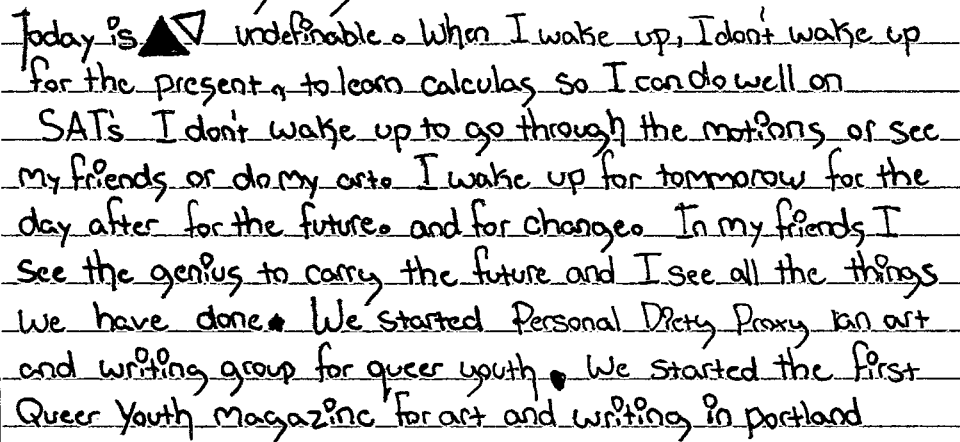 Today is undefinable. When I wake up, I don't wake up
for the present, to learn calculas so I can do well on
SAT's I don't wake up to go through the motions or see
my friends or do my art. I wake up for tommorow for the
day after for the future. and for change. In my friends I
see the genius to carry the future and I see all the things
we have done. We started Personal Diety Proxy an art
and writing group for queer youth. We started the first
Queer Youth Magazine for art and writing in portland